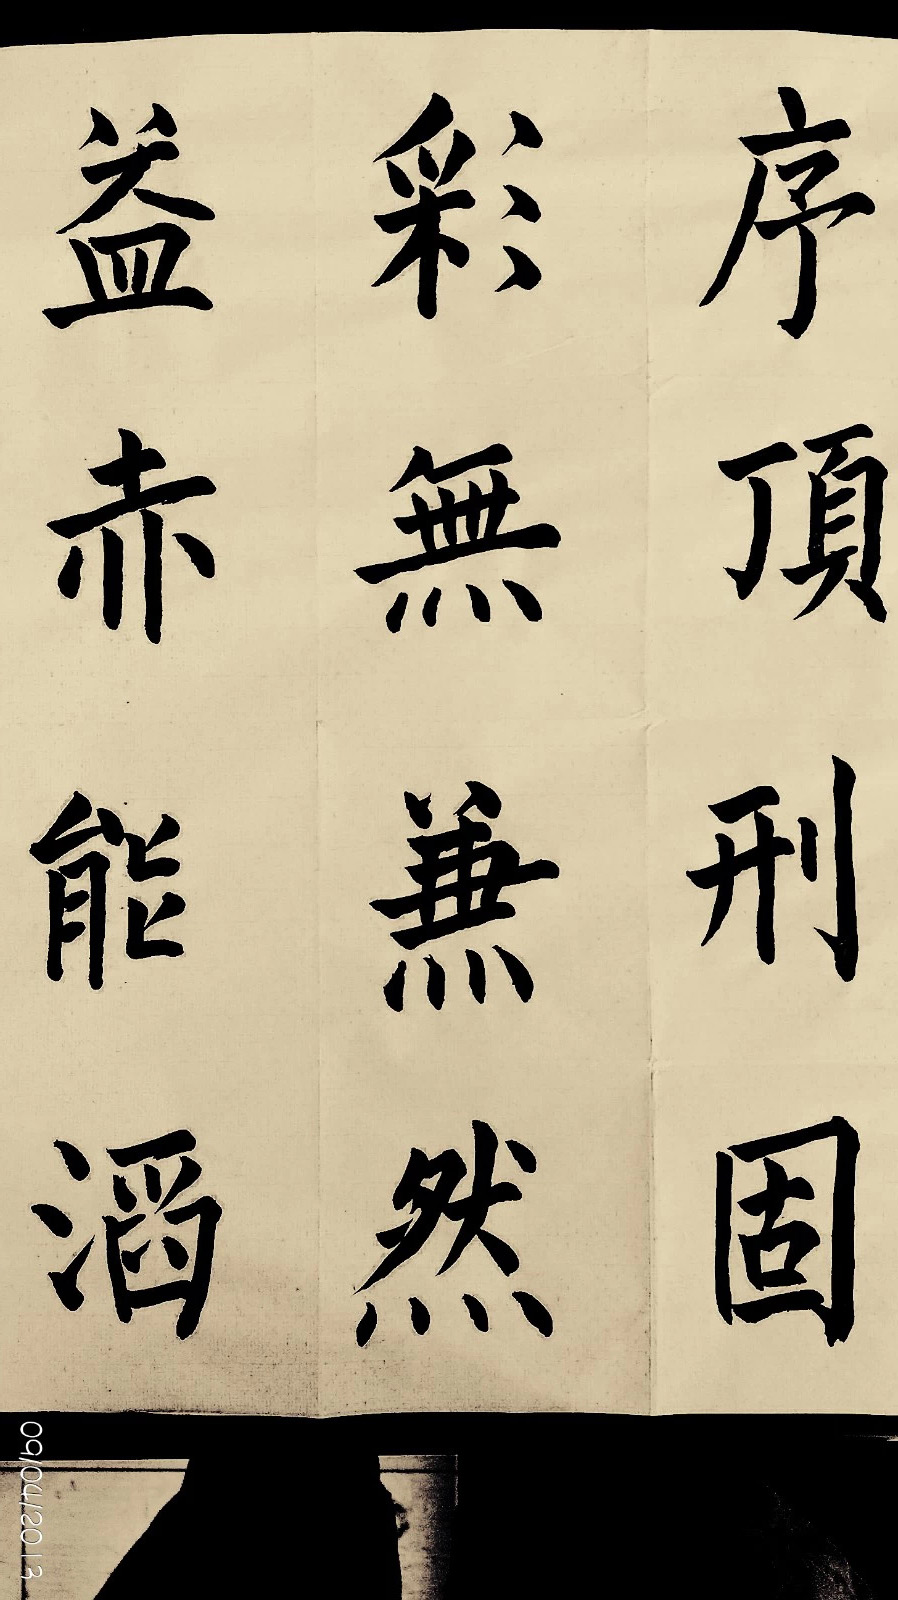 序頂刑固
彩無兼然
益赤能滔
09/04/2013